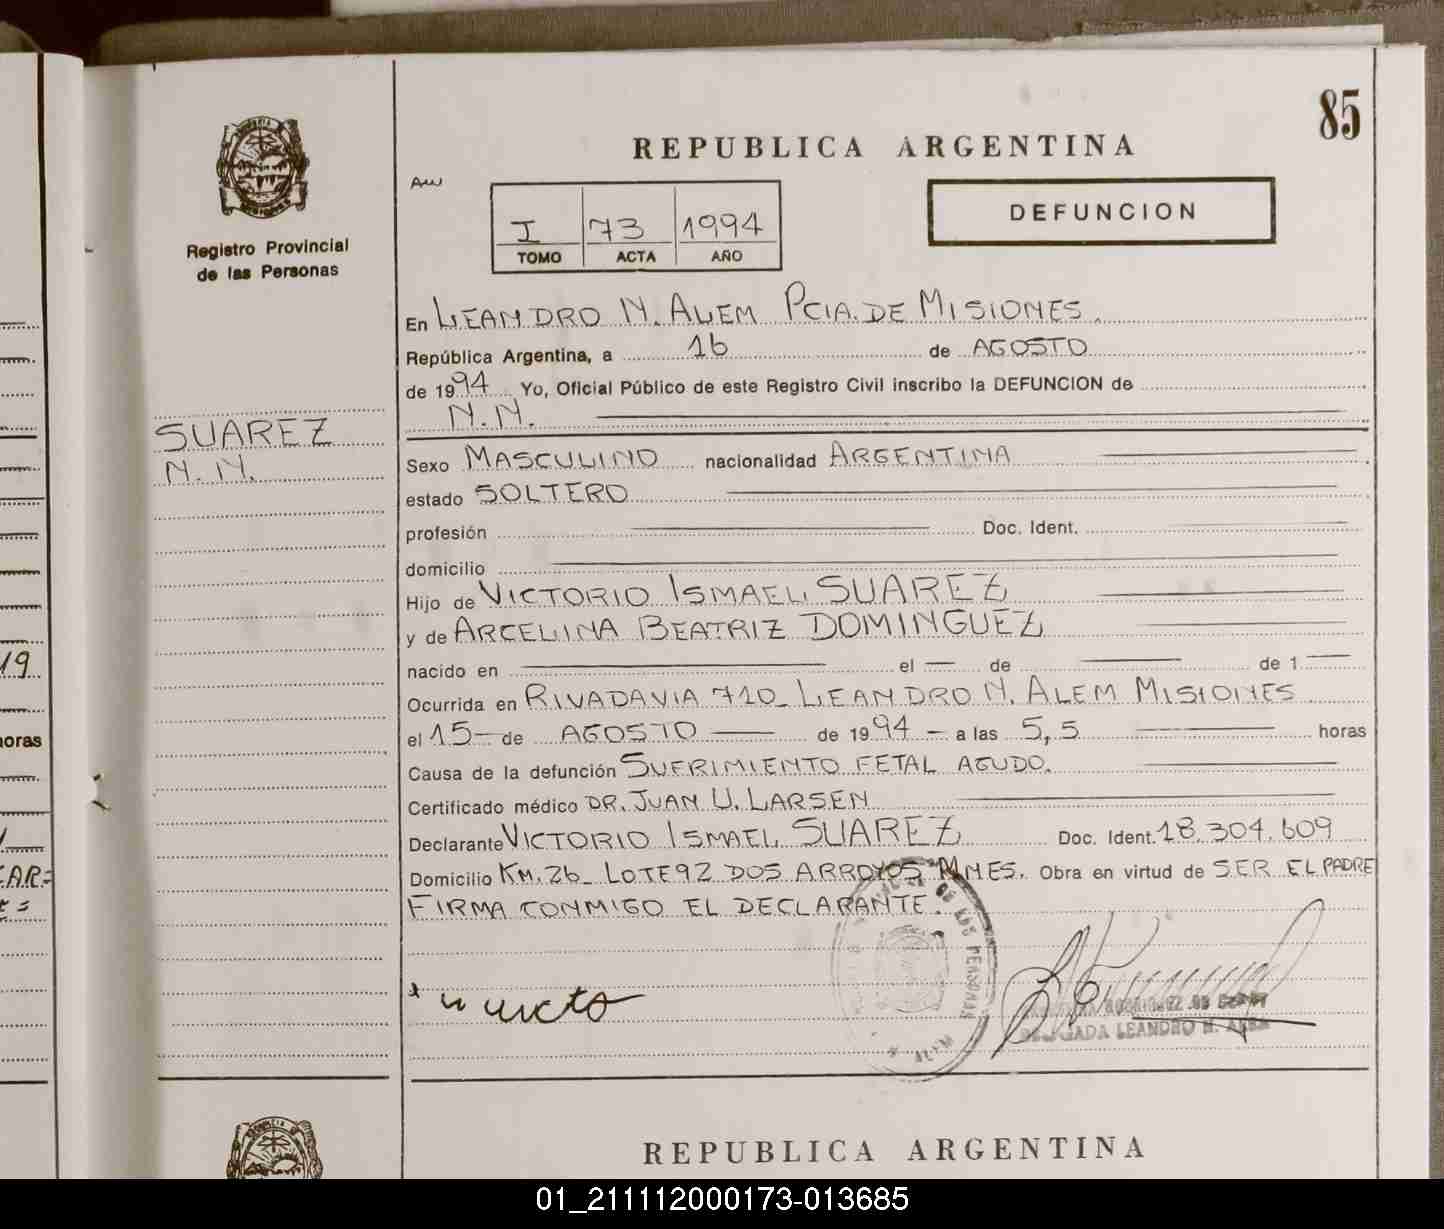 85
REPUBLICA ARGENTINA
Registro Provincial
de las Personas
I 73 1994
TOMO ACTA AÑO
DEFUNCION
SUAREZ
N.N.
En LEANDRO N. ALEM PCIA. DE MISIONES.
República Argentina, a 16 de AGOSTO
de 1994 Yo, Oficial Público de este Registro Civil inscribo la DEFUNCION de
N.N.
Sexo MASCULINO nacionalidad ARGENTINA
estado SOLTERO
profesión Doc. Ident.
domicilio
Hijo de VICTORIO ISMAEL SUAREZ
y de ARCELINA BEATRIZ DOMINGUEZ
nacido en el de de 1
Ocurrida en RIVADAVIA 710_ LEANDRO N. ALEM MISIONES
el 15 de AGOSTO de 1994 a las 5,5 horas
Causa de la defunción SUFRIMIENTO FETAL AGUDO.
Certificado médico DR. JUAN U. LARSEN
Declarante VICTORIO ISMAEL SUAREZ Doc. Ident. 18.304.609
Domicilio KM. 26_ LOTE 92 DOS ARROYOS MNES. Obra en virtud de SER EL PADRE
FIRMA CONMIGO EL DECLARANTE.
DE LAS PERSONAS
ALEM
DELEGADA LEANDRO N. ALEM
REPUBLICA ARGENTINA
19
horas
01_211112000173-013685